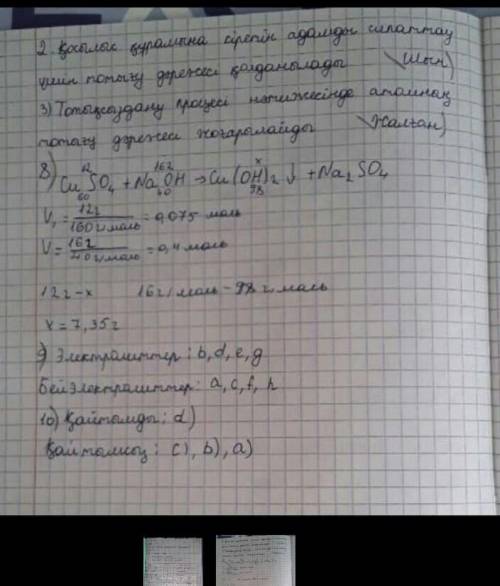 2. Қосылыс құрамына кіретін атомды сипаттау
үшін тотығу дәрежесі қолданылады (Шын)
3) Тотықсыздану процесі нәтижесінде атомның
тотығу дәрежесі жоғарылайды (Жалған)
12 16г x
8) CuSO4 + NaOH → Cu(OH)2 ↓ + Na2SO4
60 40 98
V1 = 12г / 160 г/моль = 0,075 моль
V = 16г / 40 г/моль = 0,4 моль
12г – x 16г/моль – 98 г/моль
x = 7,35 г
9) Электролиттер: b, d, e, g
Бейэлектролиттер: a, c, f, h
10) Қайтымды: d)
Қайтымсыз: c), b), a)